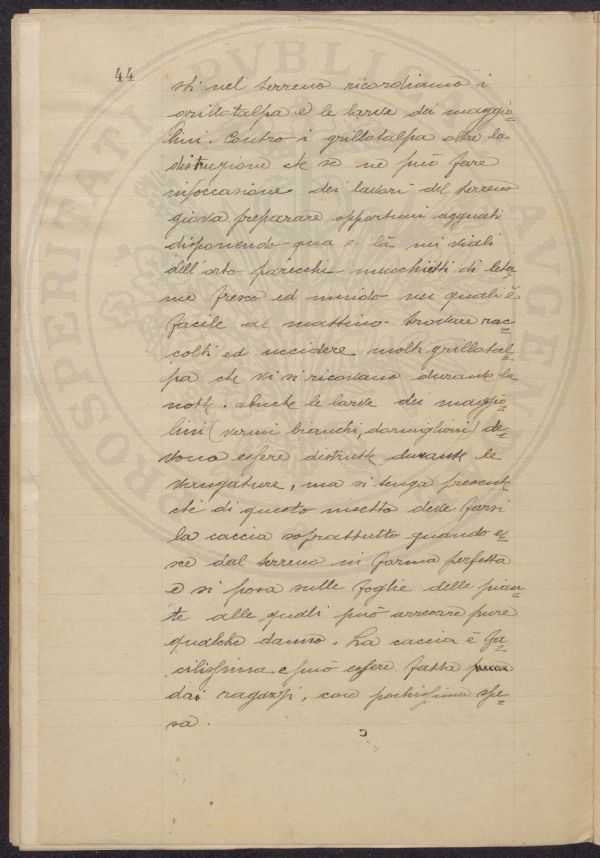 44
sti nel terreno ricordiamo i
grillotalpa e le larve dei maggio=
lini. Contro i grillotalpa oltre la
distruzione che se ne può fare
in occasione dei lavori del terreno
giova preparare opportuni agguati
disponendo qua e là nei viali
dell'orto parecchi mucchietti di leta=
me fresco ed umido nei quali è
facile al mattino trovare rac=
colti ed uccidere molti grillotal=
pa che vi si ricovano durante la
notte. Anche le larve dei maggio=
lini (vermi bianchi, dormiglioni) de=
vono essere distrutte durante le
vangature, ma si tenga presente
che di questo insetto deve farsi
la caccia soprattutto quando e=
sce dal terreno in forma perfetta
e si posa sulle foglie delle pian=
te alle quali può arrecare pure
qualche danno. La caccia è fa=
cilissima e può essere fatta
dai ragazzi, con pochissima spe=
sa.
PVBLIC
AVGE
PROSPERITATI